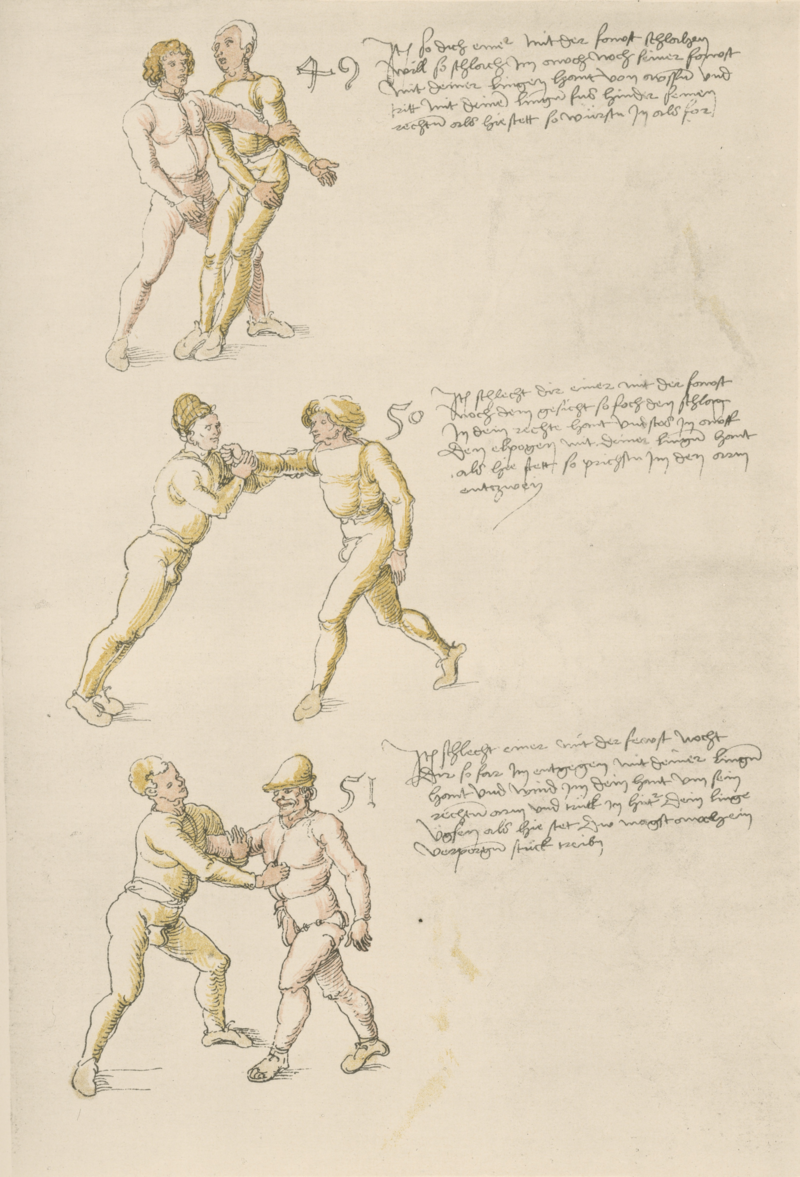 49
Itm so dich einer mit der fawst schlachen
will so schlach Im auch noch seiner fawst
mit deiner lingen hant von aussen und
tritt mit deinem lingen fus hinder seinen
rechten als hie stett so würstu In als for
50
Itm schlecht dir einer mit der fawst
noch dem gesicht so foch den schlag
In dein rechte hant und stos In auff
den elpogen mit deiner lingen hant
als hie stett so prichstu Im den arm
entzwey
51
Itm schlecht einer mit der fawst nocht
dir so far Im entgegen mit deiner lingen
hant und wind Im dein hant um sein
rechten arm und truk In hinter dein linge
als hie stet Du magst auch ein
verporgen stuck treiben